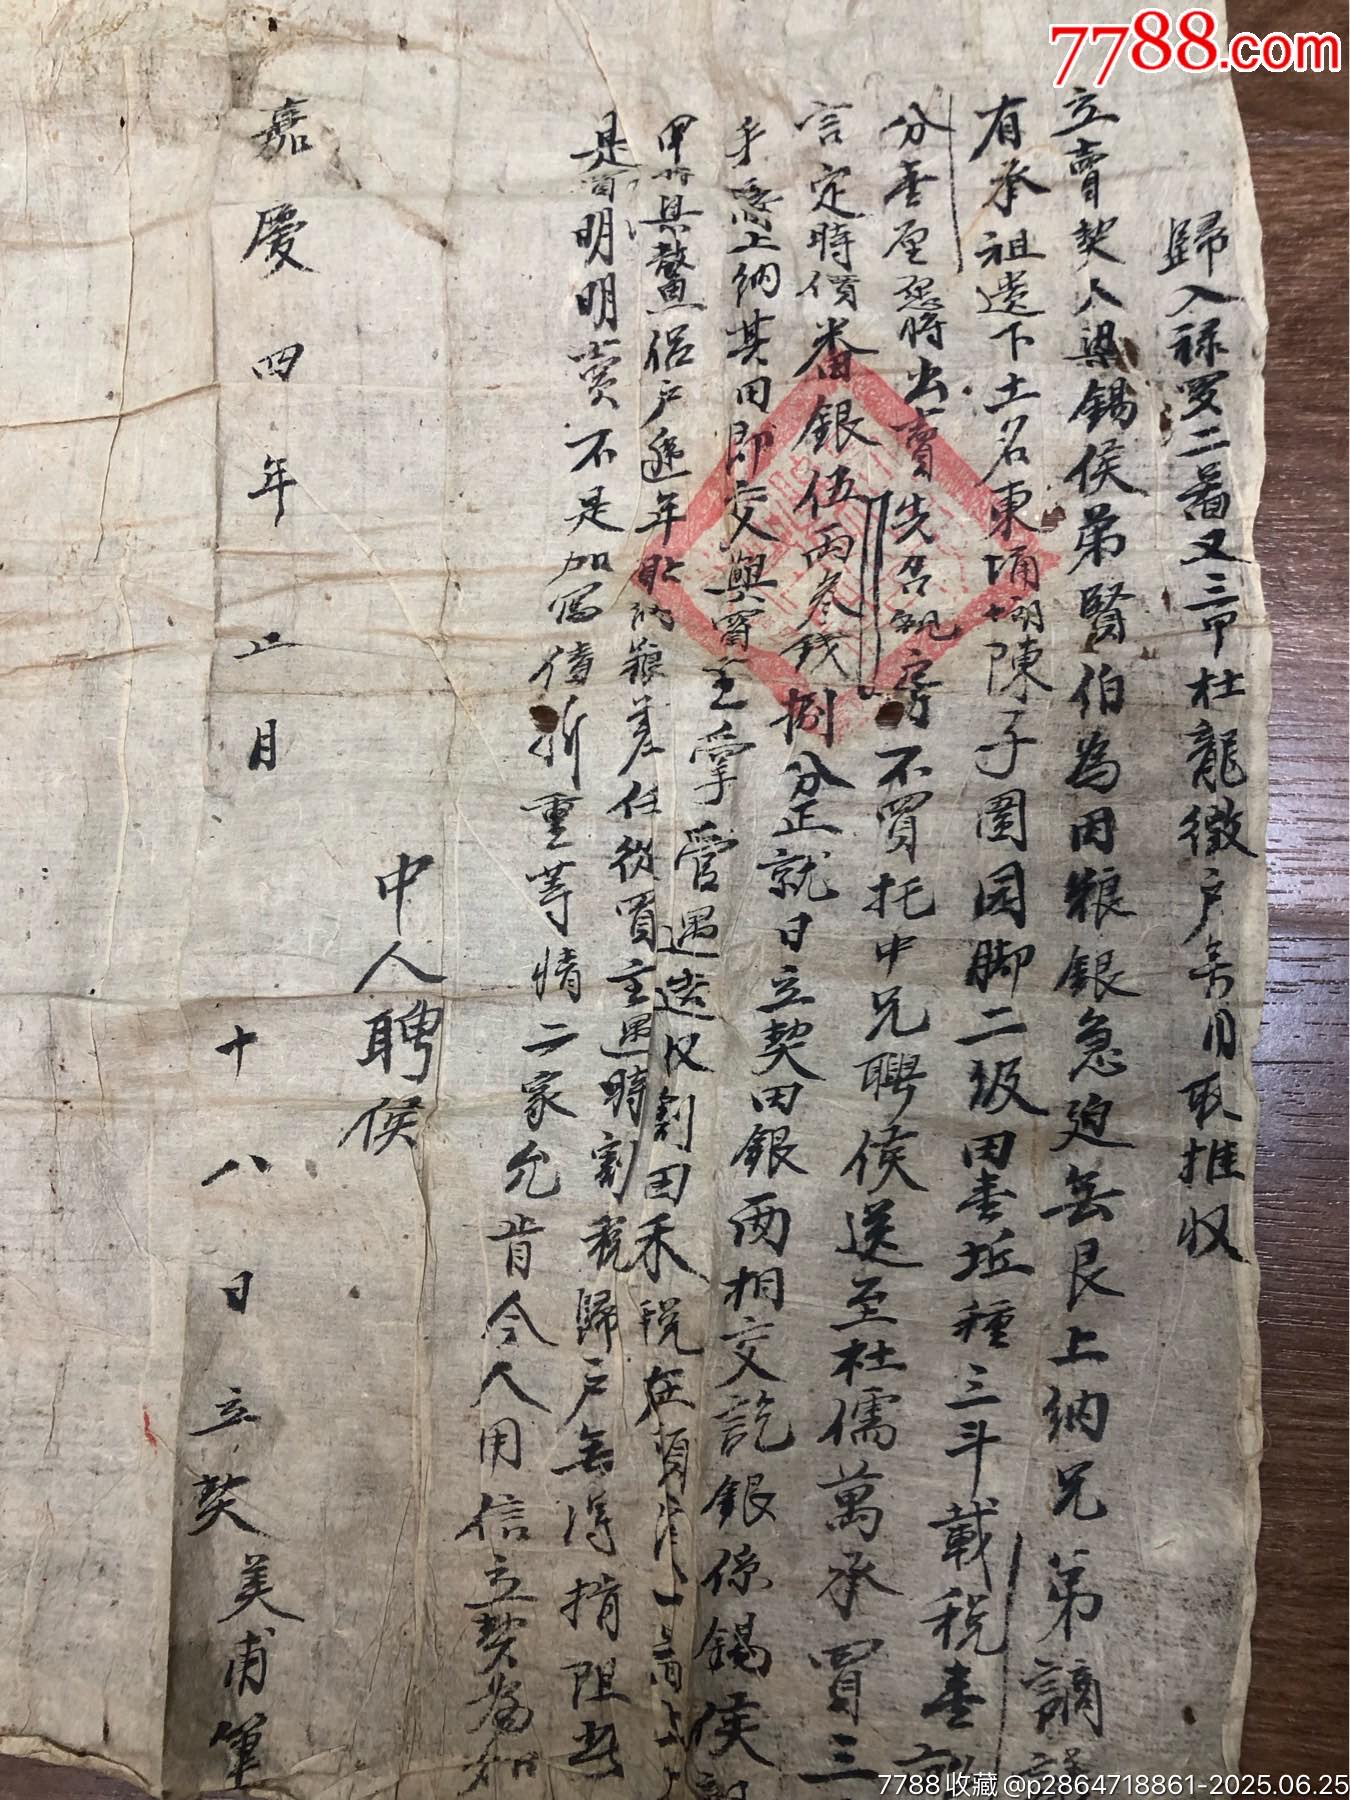 7788.com
歸入禄罗二啚又三甲杜龍徵户 收推收
立賣契人梁錫侯弟賢伯為因粮銀急迫無艮上納兄弟謫議
有承祖遗下土名東埇 陳子圍园脚二级田壹坵種三斗載税壹
分壹厘 將出賣先召親房不買托中兄聘侯送至杜儒萬承買三
言定時價番銀伍両叁钱捌分正就日立契田銀两相交訖銀係錫侯
手 上納其田即交與買主掌管遇造 割田禾税在
甲 與鰲侣户遞年 納粮差任從買主遇時割税歸户無得揹阻
是實明明賣不是加寫債折重等情二家允肯今人用信立契為如
中人聘侯
嘉慶四年正月十八日立契美甫筆
7788收藏@p2864718861-2025.06.25